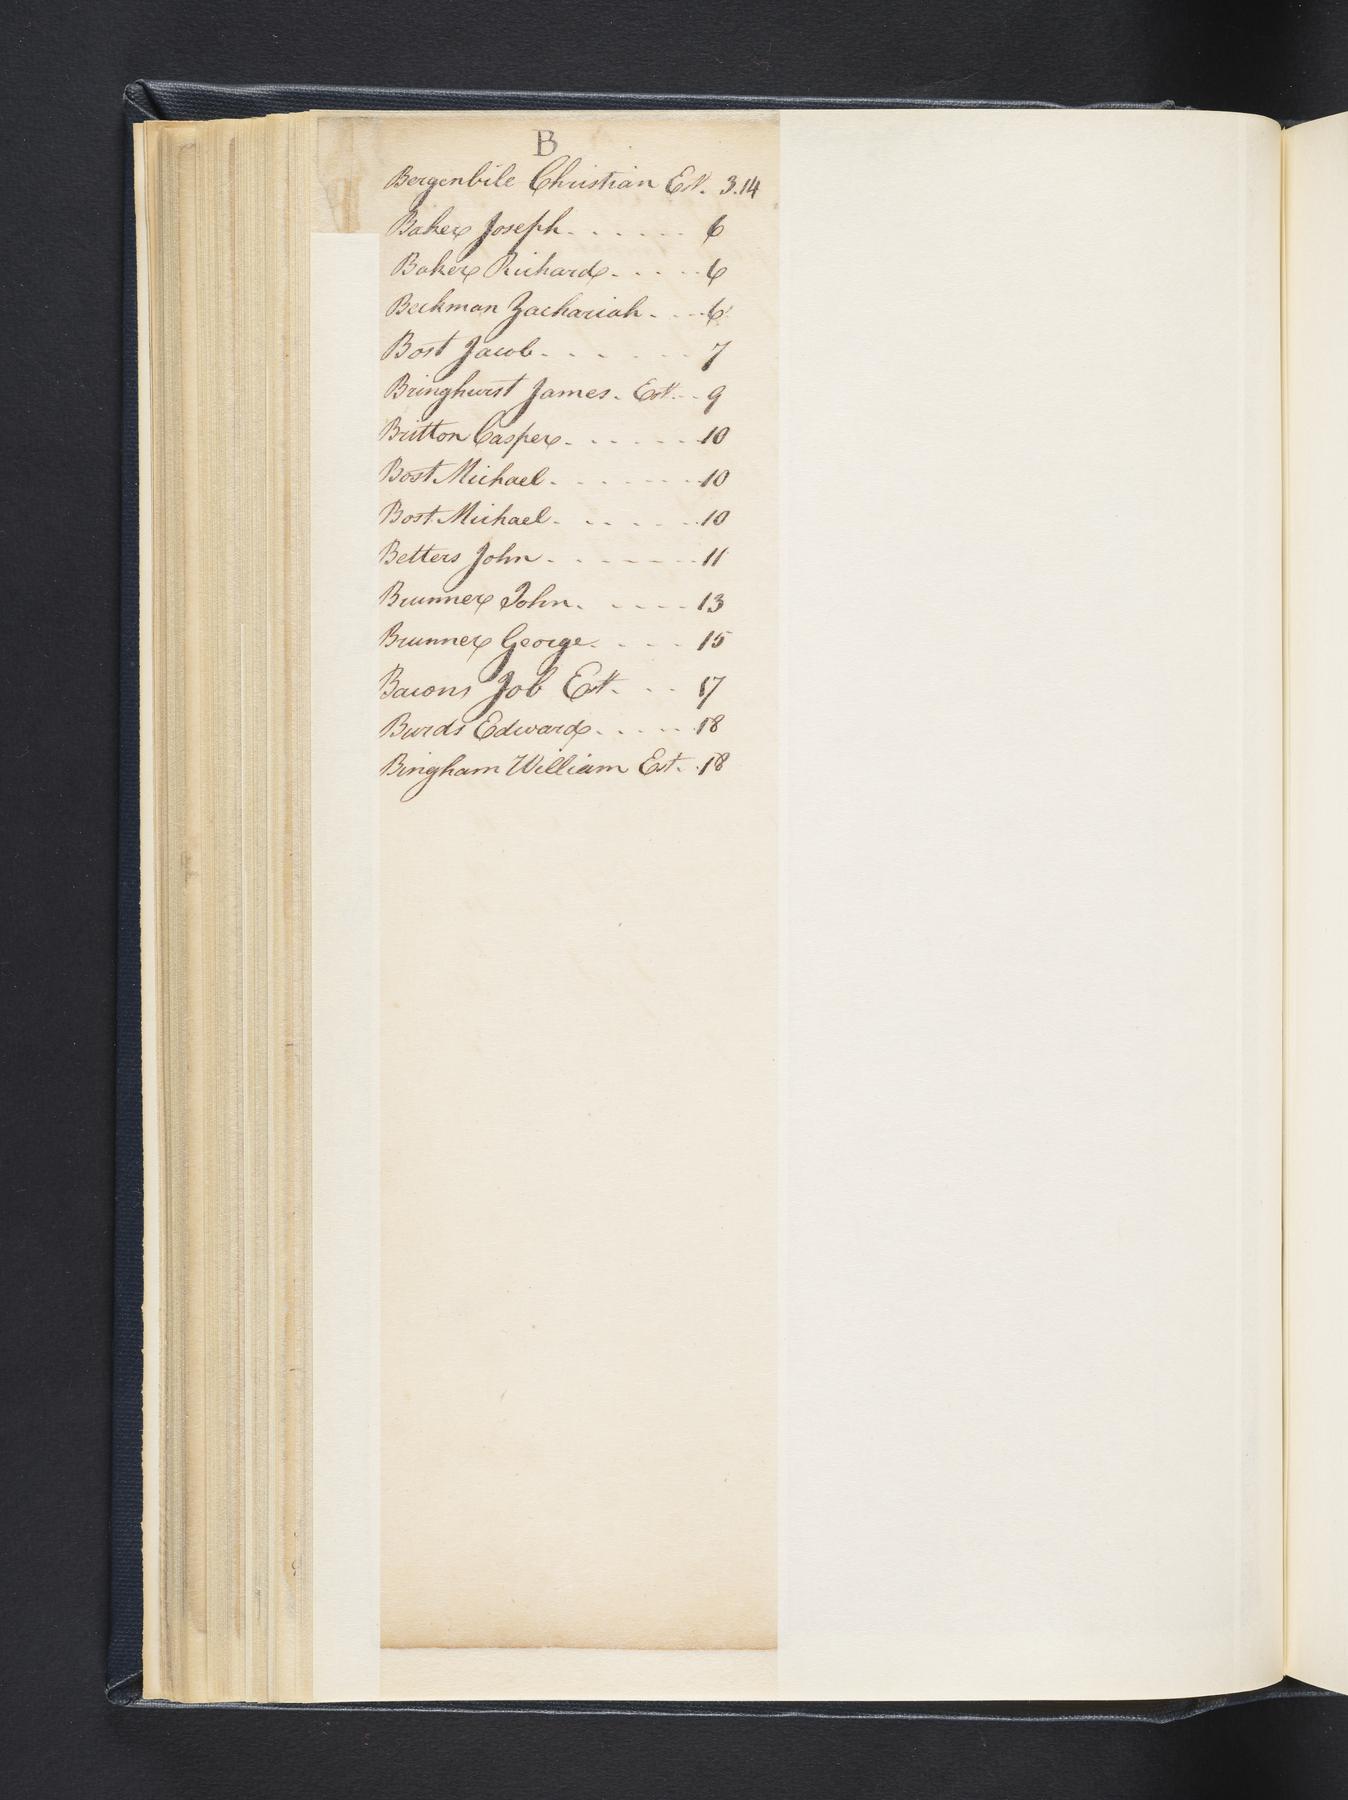 B
Bergenbile Christian Est. 3.14
Baker Joseph. - - - - - - 6
Baker Richard. - - - - 6
Beckman Zachariah - - - 6
Bost Jacob - - - - - - 7
Bringhurst James. Est. - - 9
Britton Casper. - - - - - - 10
Bost Michael - - - - - - - 10
Bost Michael - - - - - - 10
Betters John - - - - - - - 11
Brunner John. - - - - 13
Brunner George. - - - 15
Bacons Job Est. - - 17
Burds Edward - - - - - 18
Bingham William Est. - 18